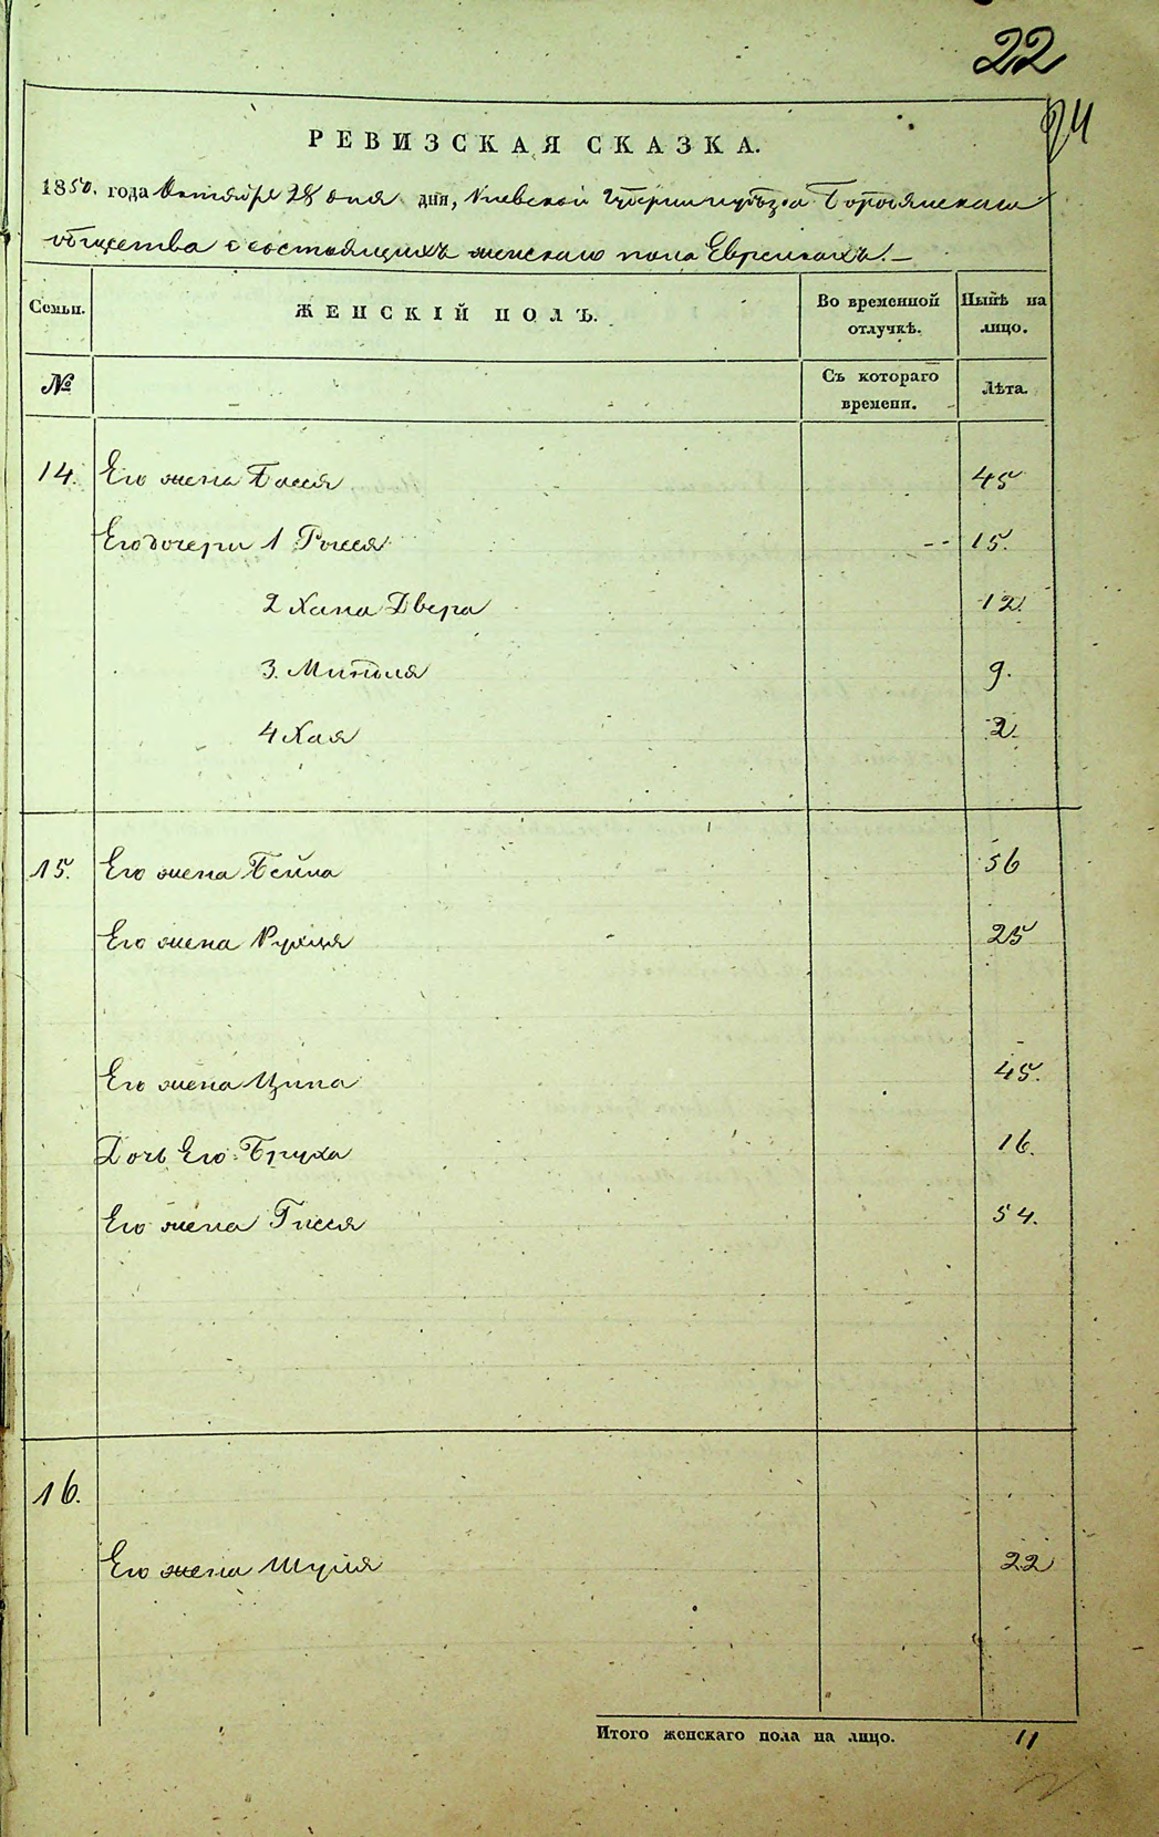 22
24
РЕВИЗСКАЯ СКАЗКА.
1850. года Октября 28 дня дня, Киевской Губернии и уѣзда Бородянскаго
общества о состоящихъ женскаго пола Евреикахъ. —
Семьи.
ЖЕНСКІЙ ПОЛЪ.
Во временной отлучкѣ.
Нынѣ на лицо.
№
Съ котораго времени.
Лѣта.
14. Его жена Бася 45
Его дочери 1 Рися -- 15.
2 Хана Двера 12.
3. Минця 9.
4 Хая 2.
15. Его жена Бейла 56
Его жена Рухля 25
Его жена Ципа 45.
Дочь Его Бруха 16.
Его жена Гися 54.
16.
Его жена 22
Итого женскаго пола на лицо. 11